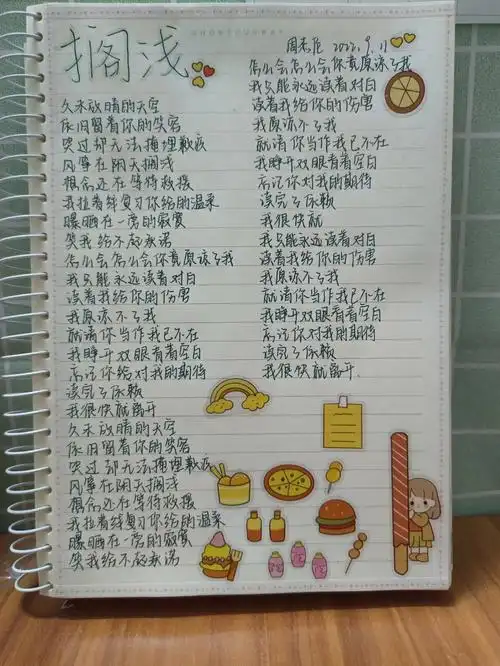 搁浅
周杰伦 2022.9.11
久未放晴的天空
依旧留着你的笑容
哭过却无法掩埋歉疚
风筝在阴天搁浅
想念还在等待救援
我拉着线复习你给的温柔
曝晒在一旁的寂寞
笑我给不起承诺
怎么会怎么会你竟原谅了我
我只能永远读着对白
读着我给你的伤害
我原谅不了我
就请你当作我已不在
我睁开双眼看着空白
忘记你给对我的期待
读完了依赖
我很快就离开
久未放晴的天空
依旧留着你的笑容
哭过却无法掩埋歉疚
风筝在阴天搁浅
想念还在等待救援
我拉着线复习你给的温柔
曝晒在一旁的寂寞
笑我给不起承诺
怎么会怎么会你竟原谅了我
我只能永远读着对白
读着我给你的伤害
我原谅不了我
就请你当作我已不在
我睁开双眼看着空白
忘记你对我的期待
读完了依赖
我很快就
我只能永远读着对白
读着我给你的伤害
我原谅不了我
就请你当作我已不在
我睁开双眼看着空白
忘记你对我的期待
读完了依赖
我很快就离开